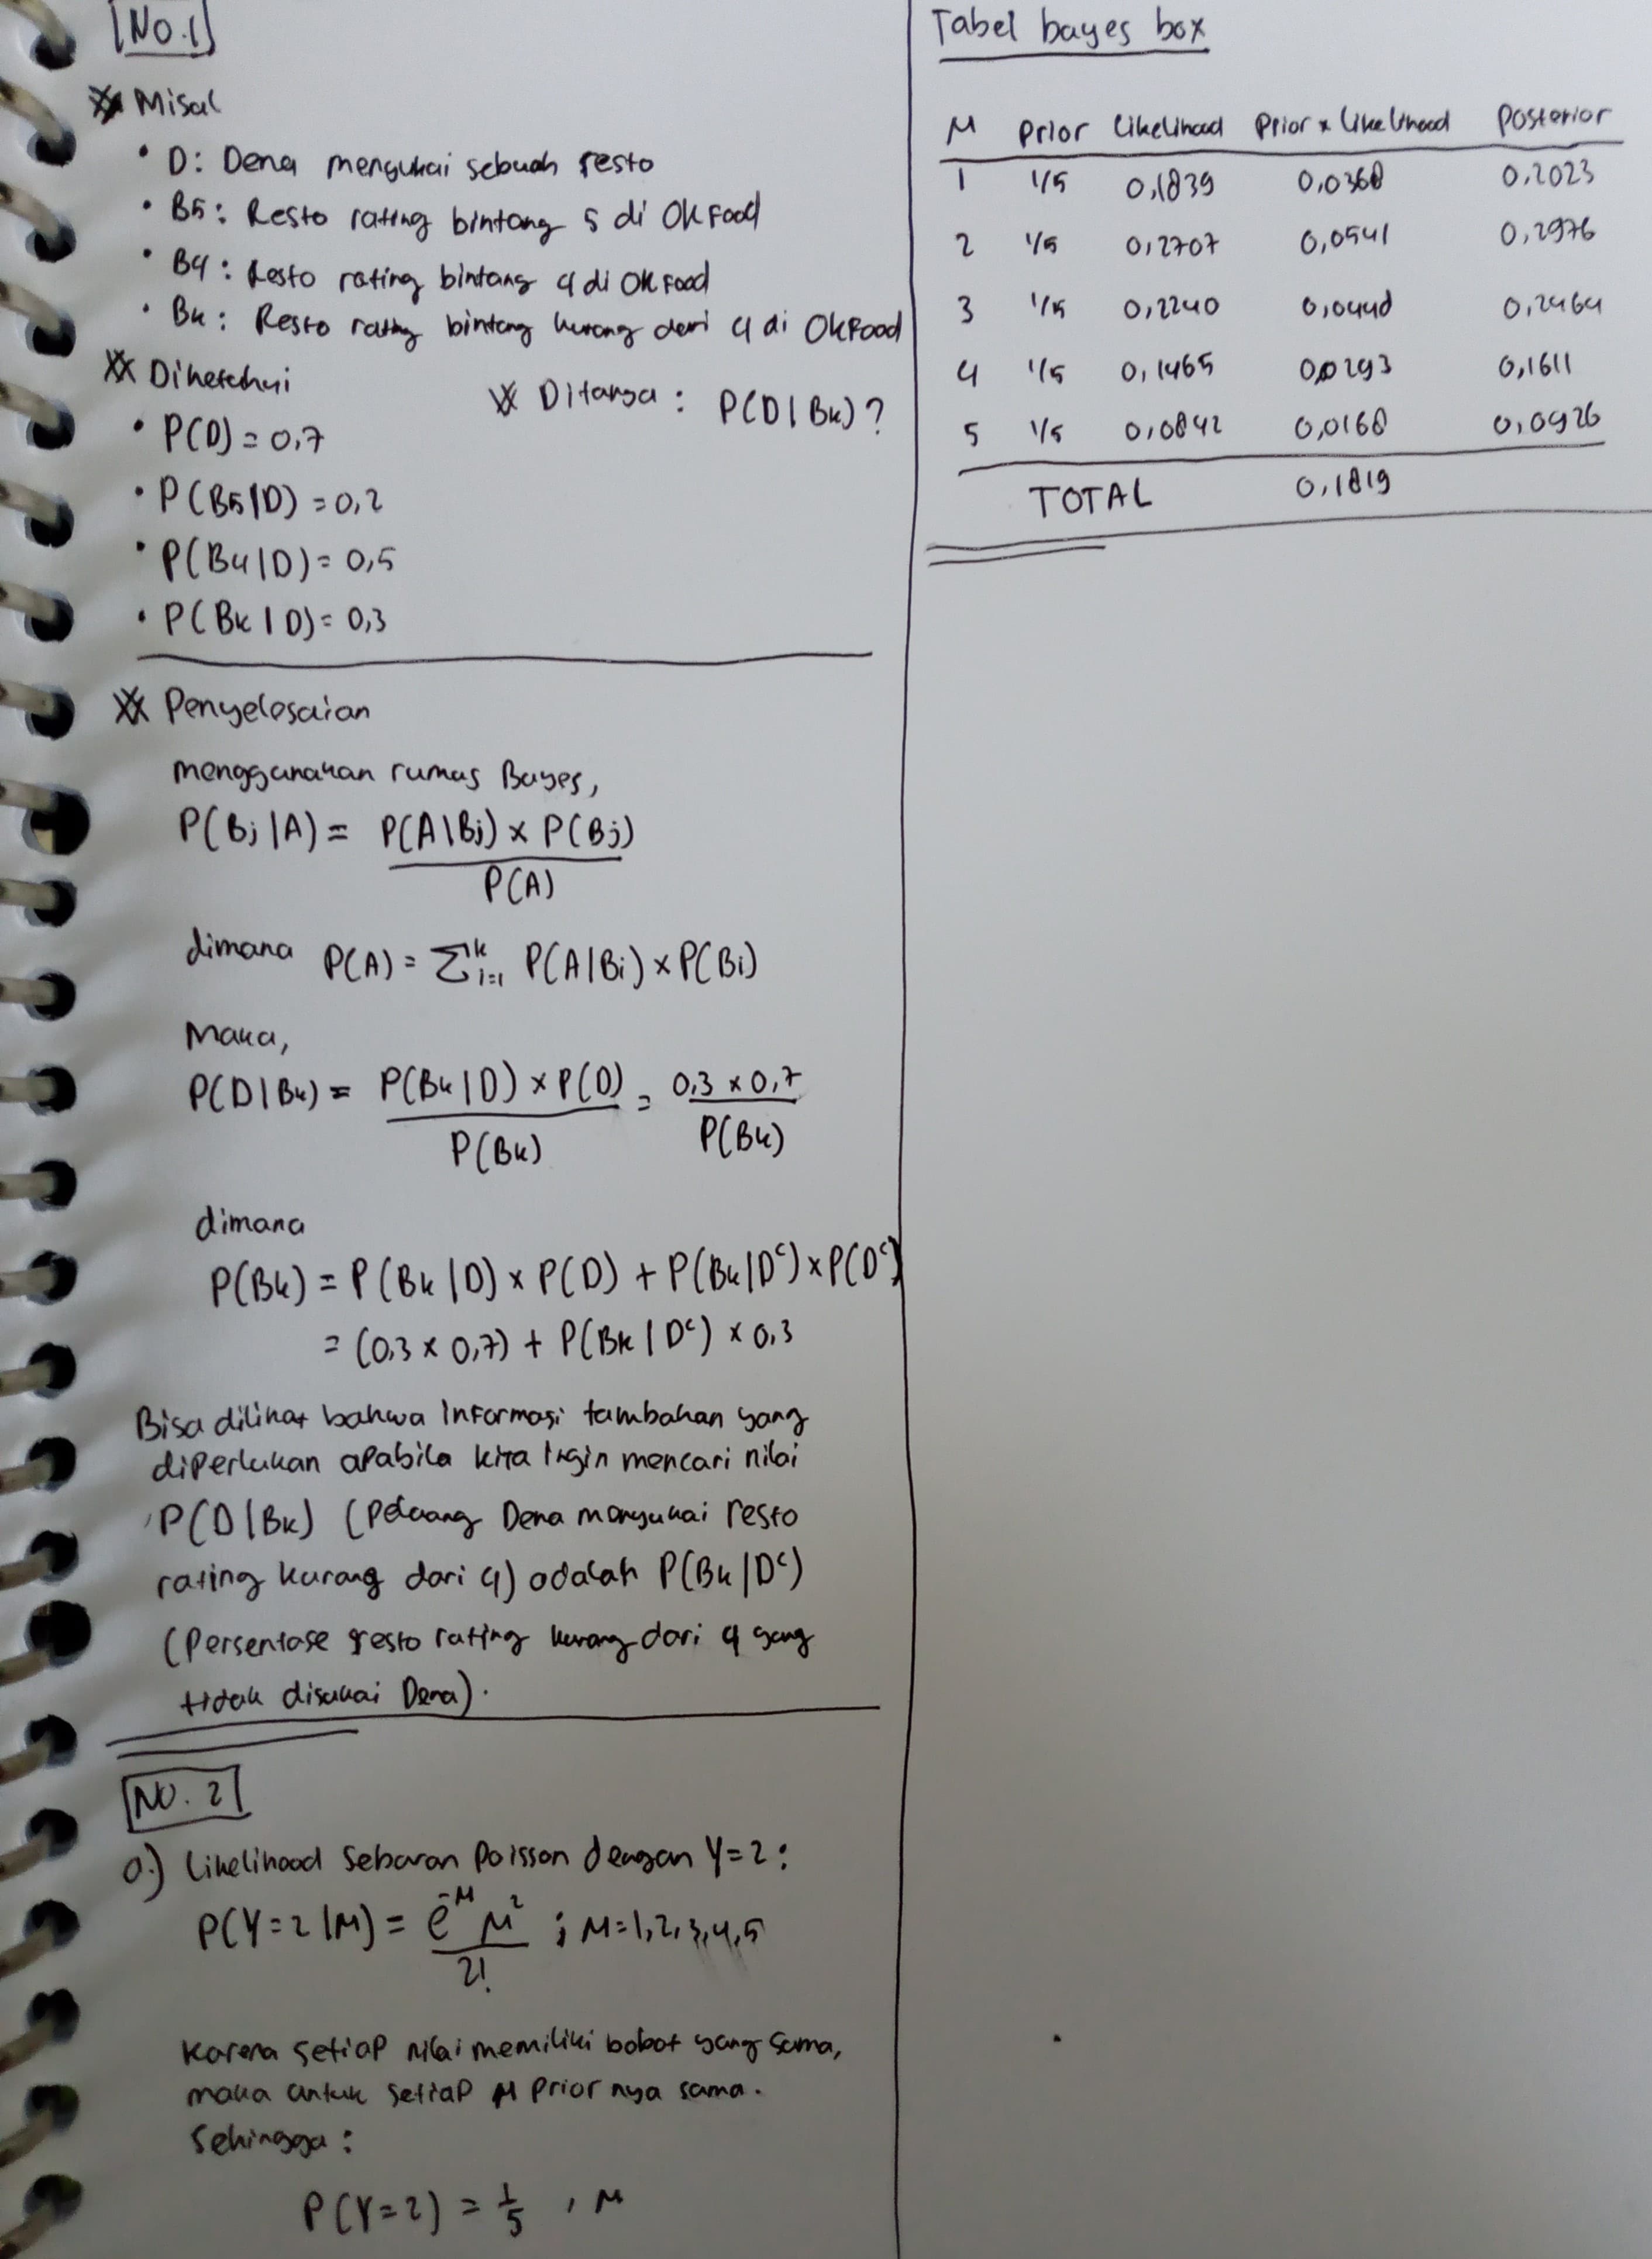 No. 1
Misal
• D: Dena menyukai sebuah resto
• B5: Resto rating bintang 5 di OkFood
• B4: Resto rating bintang 4 di OkFood
• Bk: Resto rating bintang kurang dari 4 di OkFood
Diketahui
Ditanya: P(D|Bk)?
• P(D) = 0,7
• P(B5|D) = 0,2
• P(B4|D) = 0,5
• P(Bk|D) = 0,3
Penyelesaian
menggunakan rumus Bayes,
P(Bj|A) = P(A|Bj) x P(Bj) / P(A)
dimana P(A) = Σᵏᵢ₌₁ P(A|Bi) x P(Bi)
Maka,
P(D|Bk) = P(Bk|D) x P(D) / P(Bk) = 0,3 x 0,7 / P(Bk)
dimana
P(Bk) = P(Bk|D) x P(D) + P(Bk|Dᶜ) x P(Dᶜ)
= (0,3 x 0,7) + P(Bk|Dᶜ) x 0,3
Bisa dilihat bahwa informasi tambahan yang
diperlukan apabila kita ingin mencari nilai
P(D|Bk) (Peluang Dena menyukai resto
rating kurang dari 4) adalah P(Bk|Dᶜ)
(Persentase resto rating kurang dari 4 yang
tidak disukai Dena).
NO. 2
a.) Likelihood Sebaran Poisson dengan Y=2:
P(Y=2|μ) = e^-μ μ² / 2! ; μ=1,2,3,4,5
Karena setiap nilai memiliki bobot yang sama,
maka untuk setiap μ prior nya sama.
Sehingga:
P(Y=2) = 1/5 , μ
Tabel bayes box
μ Prior Likelihood Prior x Likelihood Posterior
1 1/5 0,1839 0,0368 0,2023
2 1/5 0,2707 0,0541 0,2976
3 1/5 0,2240 0,0448 0,2464
4 1/5 0,1465 0,0293 0,1611
5 1/5 0,0842 0,0168 0,0926
TOTAL 0,1819